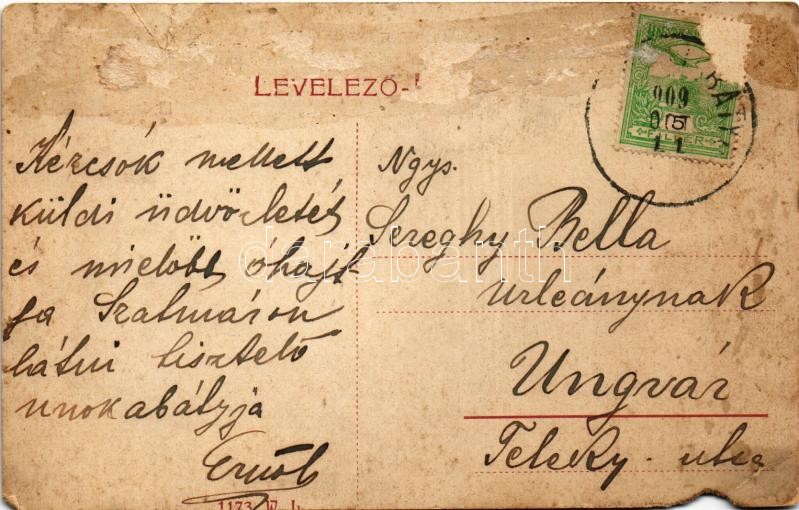 LEVELEZŐ-L
Kézcsók mellett
küldi üdvözletét
és mielőbb óhajt-
ja Szatmáron
látni tisztelő
unokabátyja
Ernő
Ngys.
Sereghy Bella
urleánynak
Ungvár
Teleky-utca
909
FILLÉR
5
11
darabanth
1173